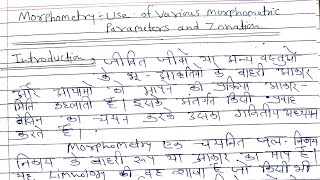 Morphometry: Use of Various morphometric
Parameters and Zonation.
Introduction, जीवित जीवों या अन्य वस्तुओं
के भू-आकृतियों के बाहरी आकार
और आयामों को मापने की प्रक्रिया आकार-
मिति कहलाती है। इसके अन्तर्गत किसी प्रवाह
बेसिन का चयन करके उसका गणितीय अध्ययन
करते हैं।
Morphometry एक चयनित जल-निकाय
निकाय के बाहरी रूप या आकार का माप है।
यह Limnology की वह शाखा है जो किसी भी